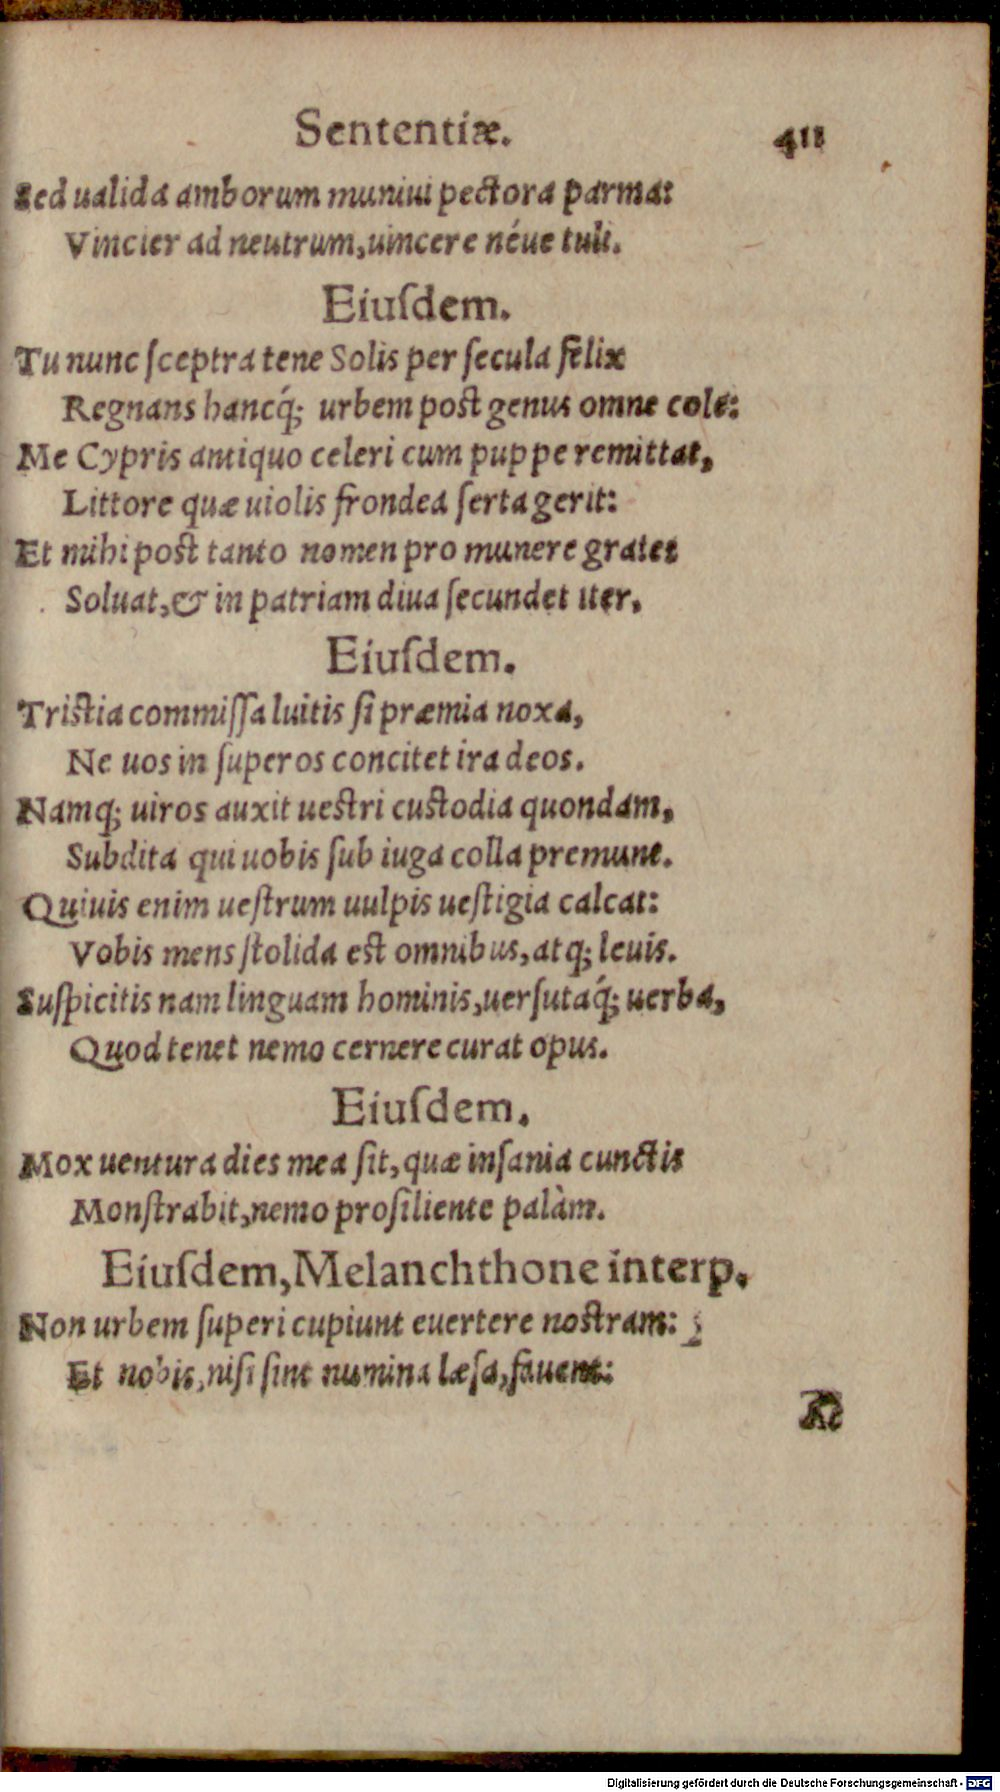 Sententiæ. 411
Sed ualida amborum muniui pectora parma:
Vincier ad neutrum, uincere néue tuli.
Eiuſdem.
Tu nunc ſceptra tene Solis per ſecula felix
Regnans hancq́; urbem post genus omne cole:
Me Cypris antiquo celeri cum puppe remittat,
Littore quæ uiolis frondea ſerta gerit:
Et mihi post tanto nomen pro munere grates
Soluat, & in patriam diua ſecundet iter.
Eiuſdem.
Tristia commiſſa luitis ſi præmia noxa,
Ne uos in ſuperos concitet ira deos.
Namq; uiros auxit uestri custodia quondam,
Subdita qui uobis ſub iuga colla premunt.
Quiuis enim ueſtrum uulpis ueſtigia calcat:
Vobis mens ſtolida est omnibus, atq; leuis.
Suſpicitis nam linguam hominis, uerſutaq́; uerba,
Quod tenet nemo cernere curat opus.
Eiuſdem.
Mox uentura dies mea ſit, quæ inſania cunctis
Monſtrabit, nemo proſiliente palàm.
Eiuſdem, Melanchthone interp.
Non urbem ſuperi cupiunt euertere nostram:
Et nobis, niſi ſint numina læſa, fauent:
Digitalisierung gefördert durch die Deutsche Forschungsgemeinschaft - DFG